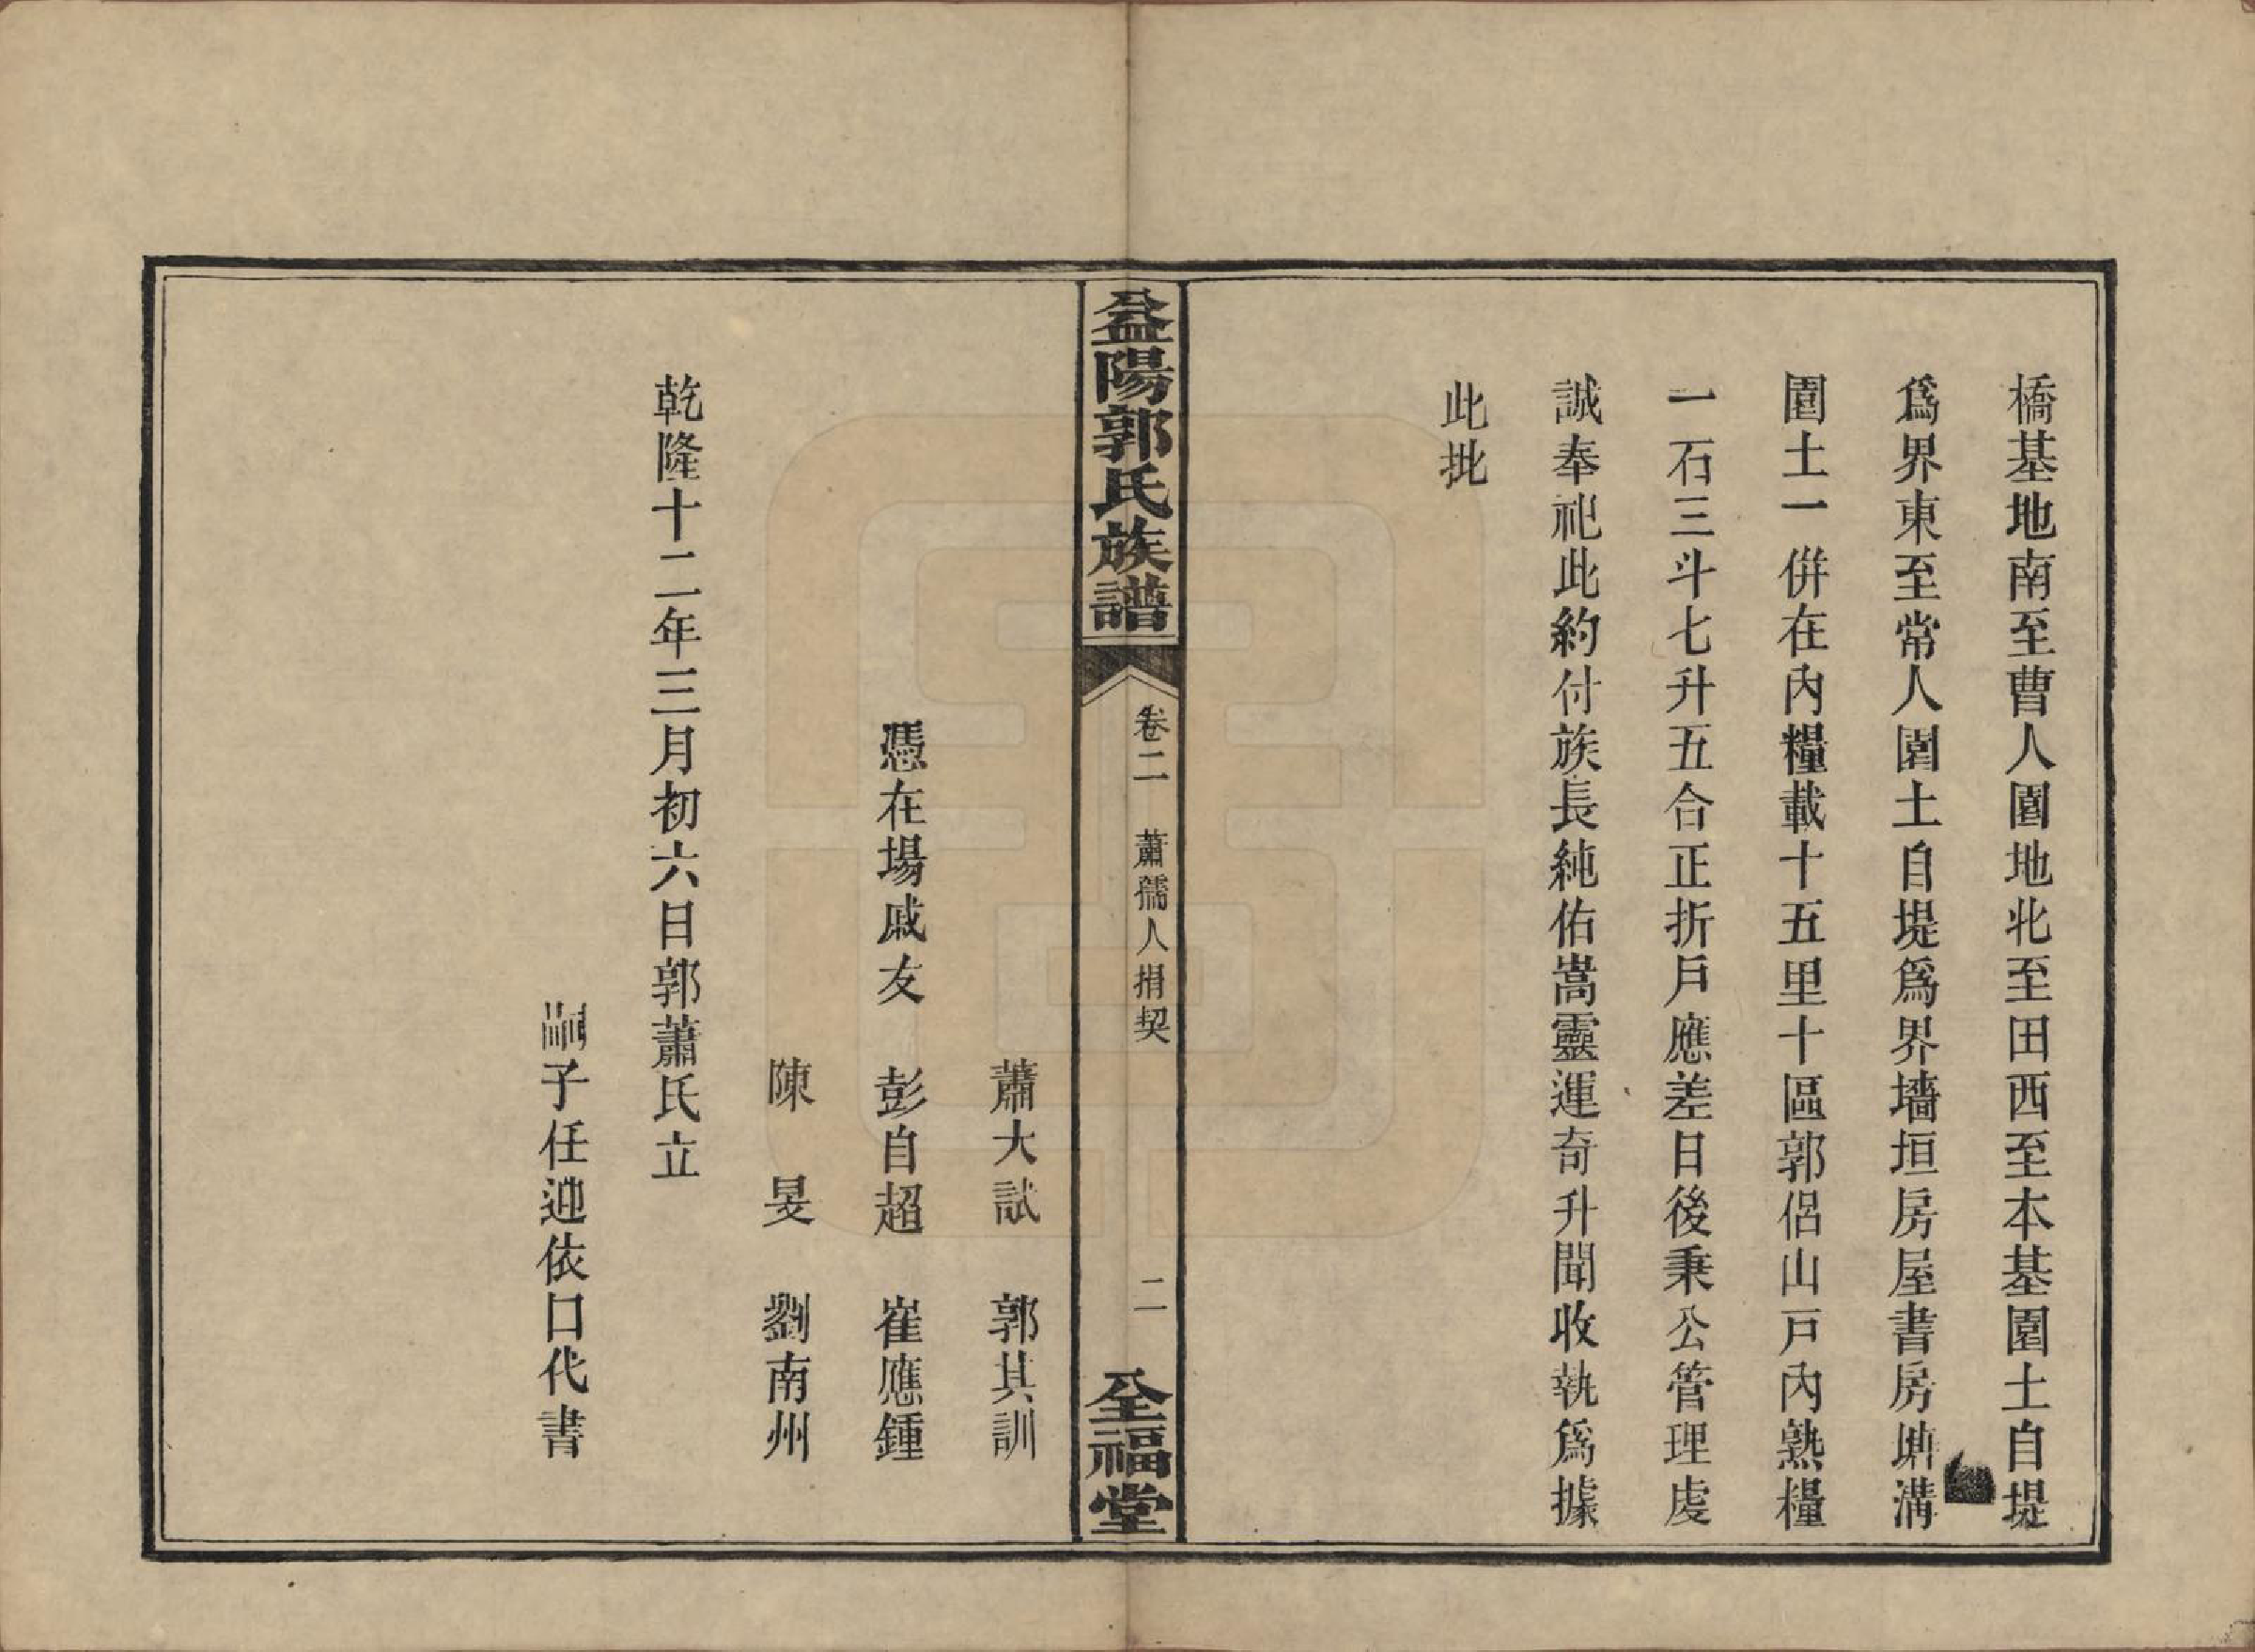 橋基地南至曹人園地北至田西至本基園土自堤
爲界東至常人園土自堤爲界墻垣房屋書房塘溝
園土一併在內糧載十五里十區郭侶山戸內熟糧
一石三斗七升五合正折戸應差日後秉公管理虔
誠奉祀此約付族長純佑嵩靈運奇升聞收執爲據
此批
益陽郭氏族譜 卷二 蕭孺人捐契 二 全福堂
蕭大試 郭其訓
憑在場戚友 彭自超 崔應鍾
陳旻 劉南州
乾隆十二年三月初六日郭蕭氏立
嗣子任迎依口代書